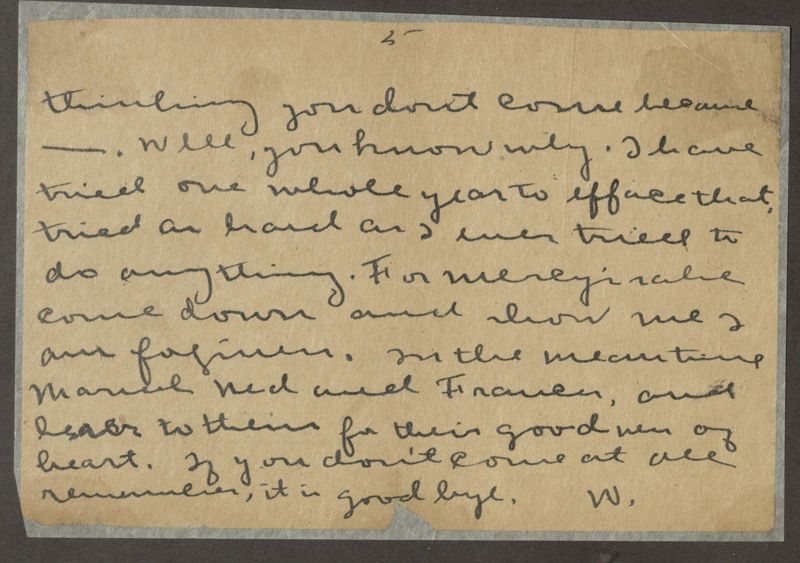 5
thinking you don't come because
—. Well, you know why. I have
tried one whole year to efface that,
tried as hard as I ever tried to
do anything. For mercy's sake
come down and show me I
am forgiven. In the meantime
Ned and Frances, and
to them for their goodness of
heart. If you don't come at all
remember, it is good bye. W.